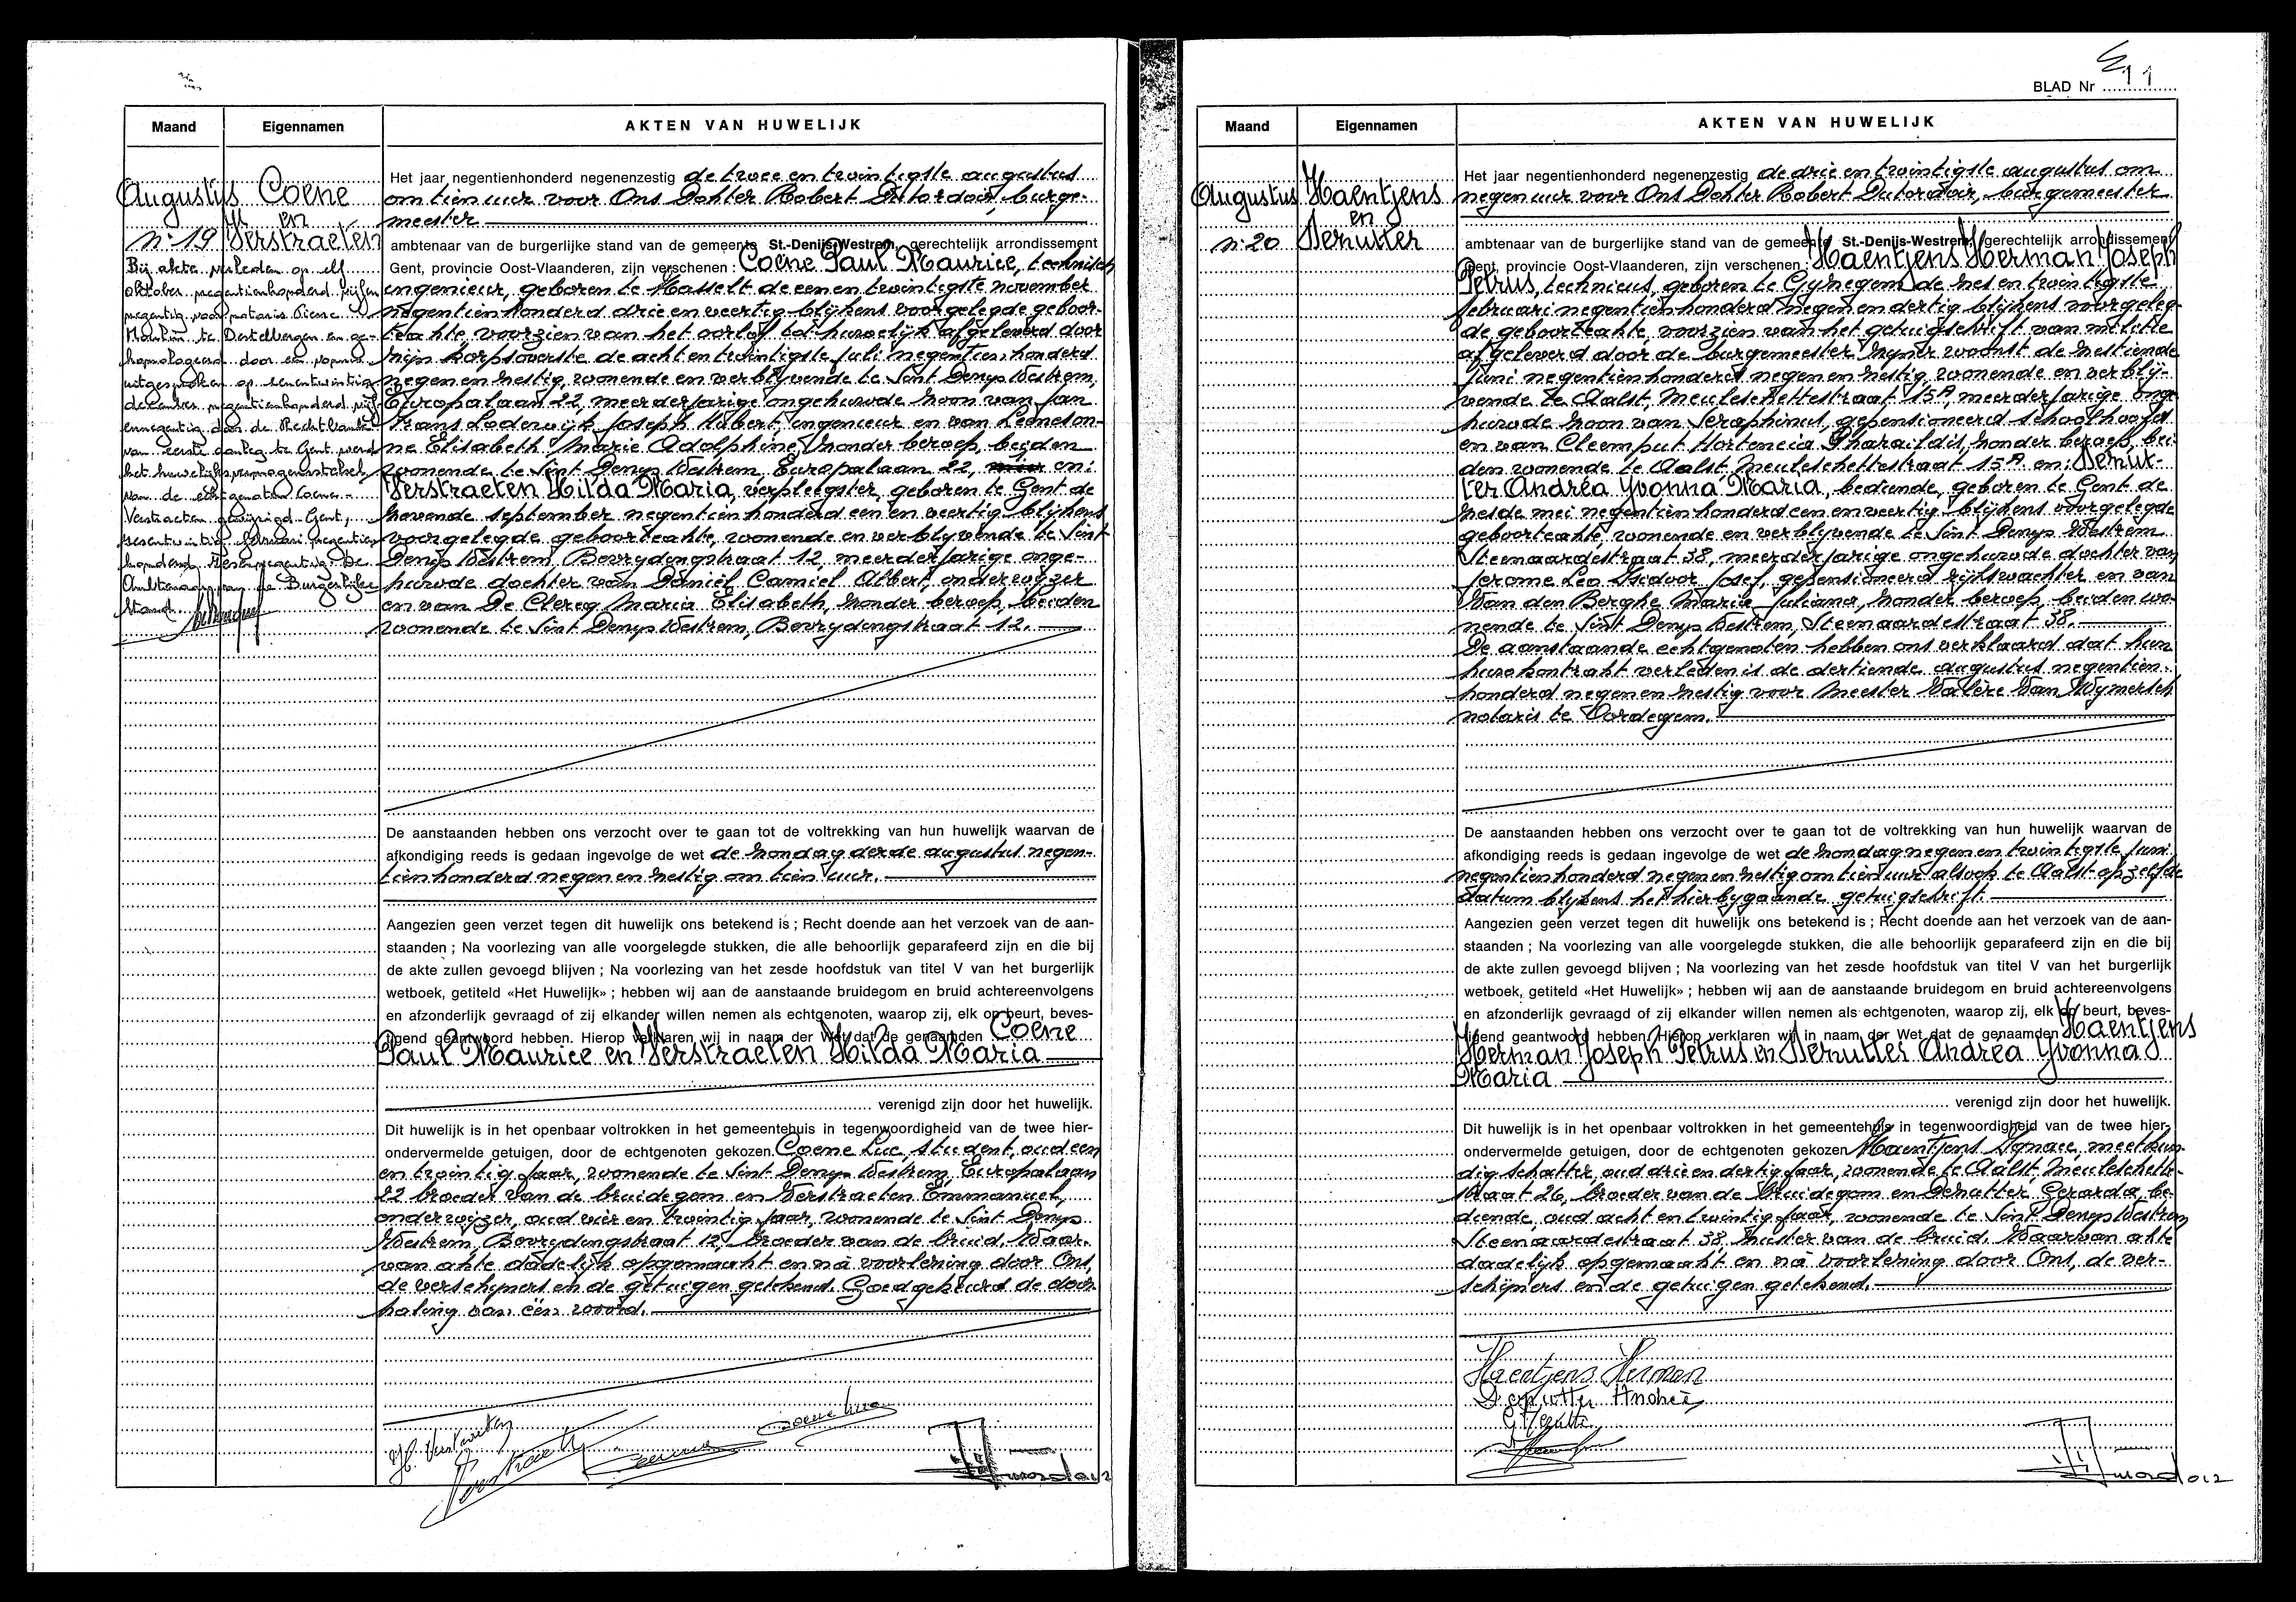 Maand
Eigennamen
AKTEN VAN HUWELIJK
Augustus
n: 19
Coene
en
Verstraeten
Bij akte verleden op elf
oktober negentienhonderd vijfen
negentig voor notaris Pierre
te Destelbergen en ge-
homologeerd door een vonnis
uitgesproken op eenentwintig
december negentienhonderd vijf-
ennegentig door de Rechtbank
van eerste aanleg te Gent werd
het huwelijksvermogensstelsel
van de echtgenoten Coene-
Verstraeten gewijzigd. Gent,
zesentwintig februari negentien
honderd zesennegentig. De
Ambtenaar van de Burgerlijke
Stand
Het jaar negentienhonderd negenenzestig de twee en twintigste augustus
om tien uur voor Ons Dokter Robert Dutordoir, burge-
meester
ambtenaar van de burgerlijke stand van de gemeente St.-Denijs-Westrem, gerechtelijk arrondissement
Gent, provincie Oost-Vlaanderen, zijn verschenen : Coene Paul Maurice, technisch
ingenieur, geboren te Hasselt de een en twintigste november
negentienhonderd drie en veertig blijkens voorgelegde geboor-
teakte, voorzien van het oorlof tot huwelijk afgeleverd door
zijn korpsoverste de acht en twintigste juli negentienhonderd
negen en zestig, wonende en verblijvende te Sint Denys Westrem,
Europalaan 22, meerderjarige ongehuwde zoon van Jan
Frans Lodewijk Joseph Hubert, ingenieur en van Leeneson-
ne Elisabeth Marie Adolphine, zonder beroep, beiden
wonende te Sint Denys Westrem, Europalaan 22, en:
Verstraeten Hilda Maria, verpleegster, geboren te Gent de
zevende september negentienhonderd een en veertig blijkens
voorgelegde geboorteakte, wonende en verblijvende te Sint
Denys Westrem, Beurydengstraat 12, meerderjarige onge-
huwde dochter van Daniël Camiel Albert, onderwijzer
en van De Clercq Maria Elisabeth, zonder beroep, beiden
wonende te Sint Denys Westrem, Beurydengstraat 12.
De aanstaanden hebben ons verzocht over te gaan tot de voltrekking van hun huwelijk waarvan de
afkondiging reeds is gedaan ingevolge de wet de zondag derde augustus negen-
tienhonderd negen en zestig om tien uur.
Aangezien geen verzet tegen dit huwelijk ons betekend is ; Recht doende aan het verzoek van de aan-
staanden ; Na voorlezing van alle voorgelegde stukken, die alle behoorlijk geparafeerd zijn en die bij
de akte zullen gevoegd blijven ; Na voorlezing van het zesde hoofdstuk van titel V van het burgerlijk
wetboek, getiteld «Het Huwelijk» ; hebben wij aan de aanstaande bruidegom en bruid achtereenvolgens
en afzonderlijk gevraagd of zij elkander willen nemen als echtgenoten, waarop zij, elk op beurt, beves-
tigend geantwoord hebben. Hierop verklaren wij in naam der Wet dat de genaamden Coene
Paul Maurice en Verstraeten Hilda Maria
verenigd zijn door het huwelijk.
Dit huwelijk is in het openbaar voltrokken in het gemeentehuis in tegenwoordigheid van de twee hier-
ondervermelde getuigen, door de echtgenoten gekozen Coene Luc, student, oud een
en twintig jaar, wonende te Sint Denys Westrem, Europalaan
22 broeder van de bruidegom en Verstraeten Emmanuel,
onderwijzer, oud vier en twintig jaar, wonende te Sint Denys
Westrem, Beurydengstraat 12, broeder van de bruid. Waar-
van akte dadelijk opgemaakt en na voorlezing door Ons,
de verschijners en de getuigen getekend. Goedgekeurd de door-
haling van één woord.
H. Verstraeten
Verstraete
Coene
Coene Luc
Dutordoir
BLAD Nr 11
Maand
Eigennamen
AKTEN VAN HUWELIJK
Augustus
n: 20
Haentjens
en
Deputter
Het jaar negentienhonderd negenenzestig de drie en twintigste augustus om
negen uur voor Ons Dokter Robert Dutordoir, burgemeester
ambtenaar van de burgerlijke stand van de gemeente St.-Denijs-Westrem, gerechtelijk arrondissement
Gent, provincie Oost-Vlaanderen, zijn verschenen : Haentjens Herman Joseph
Petrus, technicus, geboren te Gyzegem de zes en twintigste
februari negentienhonderd negen en dertig blijkens voorgeleg-
de geboorteakte, voorzien van het getuigschrift van militie
afgeleverd door de burgemeester zijner woonst de zestiende
juni negentienhonderd negen en zestig, wonende en verblij-
vende te Aalst, Meuleschettestraat 15A, meerderjarige onge-
huwde zoon van Seraphinus, gepensioneerd schoolhoofd
en van Cleemput Hortencia Pharaildis, zonder beroep, bei-
den wonende te Aalst Meuleschettestraat 15A en: Deput-
ter Andréa Yvonna Maria, bediende, geboren te Gent de
zesde mei negentienhonderd een en veertig blijkens voorgelegde
geboorteakte, wonende en verblijvende te Sint Denys Westrem
Steenaardestraat 38, meerderjarige ongehuwde dochter van
Jerome Leo Isidoor Josef, gepensioneerd rijkswachter en van
Van den Berghe Maria Juliana, zonder beroep, beiden wo-
nende te Sint Denys Westrem, Steenaardestraat 38.
De aanstaande echtgenoten hebben ons verklaard dat hun
huwkontrakt verleden is de dertiende augustus negentien-
honderd negen en zestig voor Meester Valère Van Wymersch
notaris te Oordegem.
De aanstaanden hebben ons verzocht over te gaan tot de voltrekking van hun huwelijk waarvan de
afkondiging reeds is gedaan ingevolge de wet de zondag negen en twintigste juni
negentienhonderd negen en zestig om tien uur alsook te Aalst op zelfde
datum blijkens het hierbijgaande getuigschrift.
Aangezien geen verzet tegen dit huwelijk ons betekend is ; Recht doende aan het verzoek van de aan-
staanden ; Na voorlezing van alle voorgelegde stukken, die alle behoorlijk geparafeerd zijn en die bij
de akte zullen gevoegd blijven ; Na voorlezing van het zesde hoofdstuk van titel V van het burgerlijk
wetboek, getiteld «Het Huwelijk» ; hebben wij aan de aanstaande bruidegom en bruid achtereenvolgens
en afzonderlijk gevraagd of zij elkander willen nemen als echtgenoten, waarop zij, elk op beurt, beves-
tigend geantwoord hebben. Hierop verklaren wij in naam der Wet dat de genaamden Haentjens
Herman Joseph Petrus en Deputter Andréa Yvonna
Maria
verenigd zijn door het huwelijk.
Dit huwelijk is in het openbaar voltrokken in het gemeentehuis in tegenwoordigheid van de twee hier-
ondervermelde getuigen, door de echtgenoten gekozen Haentjens Ignace, meetkun-
dig schatter, oud drie en dertig jaar, wonende te Aalst, Meuleschette-
straat 26, broeder van de bruidegom en Deputter Gerarda, be-
diende, oud acht en twintig jaar, wonende te Sint Denys Westrem
Steenaardestraat 38, zuster van de bruid. Waarvan akte
dadelijk opgemaakt en na voorlezing door Ons, de ver-
schijners en de getuigen getekend.
Haentjens Herman
Deputter Andréa
G. Deputter
Dutordoir